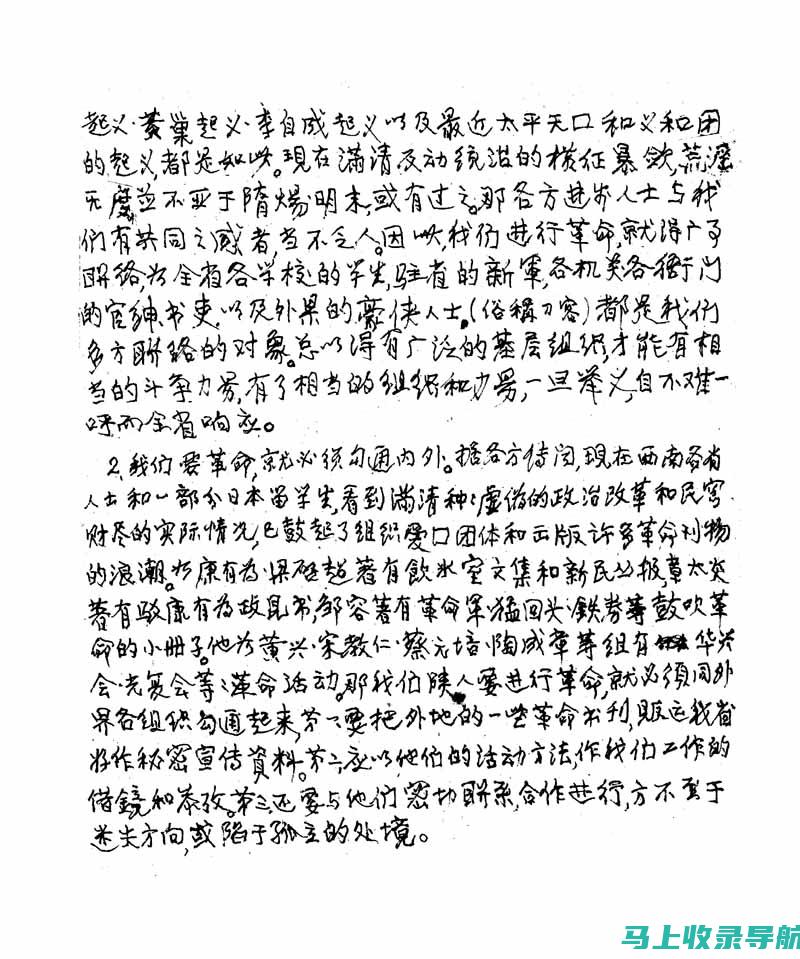 起义·黄巢起义·李自成起义以及最近太平天囗和义和团
的起义,都是如此。现在满清反动统治的横征暴敛,荒淫
无度,並不亚于隋煬明末,或有过之。那各方进步人士与我
们有共同之感者,当不乏人。因此,我们进行革命,就得广予
联络,如全省各学校的学生,驻省的新軍,各机关各衙门
的官绅、书吏,以及外界的豪侠人士,(俗稱刀客)都是我们
多方联络的对象。总以得有广泛的基层组织,才能有相
当的斗争力量,有了相当的组织和力量,一旦举义,自不难一
呼而全省响应。
2.我们要革命,就必须勾通内外。据各方传闻,现在西南各省
人士和一部分日本留学生,看到满清种々虚伪的政治改革和民穷
财尽的实际情况,已鼓起了组织爱囗团体和出版许多革命刊物
的浪潮。如康有为·梁啟超著有飲冰室文集和新民丛报,章太炎
著有驳康有为政見书,邹容著有革命軍·猛回头·鉄券等鼓吹革
命的小册子。他如黄兴·宋教仁·蔡元培·陶成章等组有华兴
会·光复会等々革命活动。那我们陕人要进行革命,就必须同外
界各组织勾通起来,第一要把外地的一些革命书刊,贩运我省
好作秘密宣传資料。第二应以他们的活动方法,作我们工作的
借鏡和参攷。第三还要与他们密切联系,合作进行,方不至于
迷失方向,或陷于孤立的处境。
马上收录导航